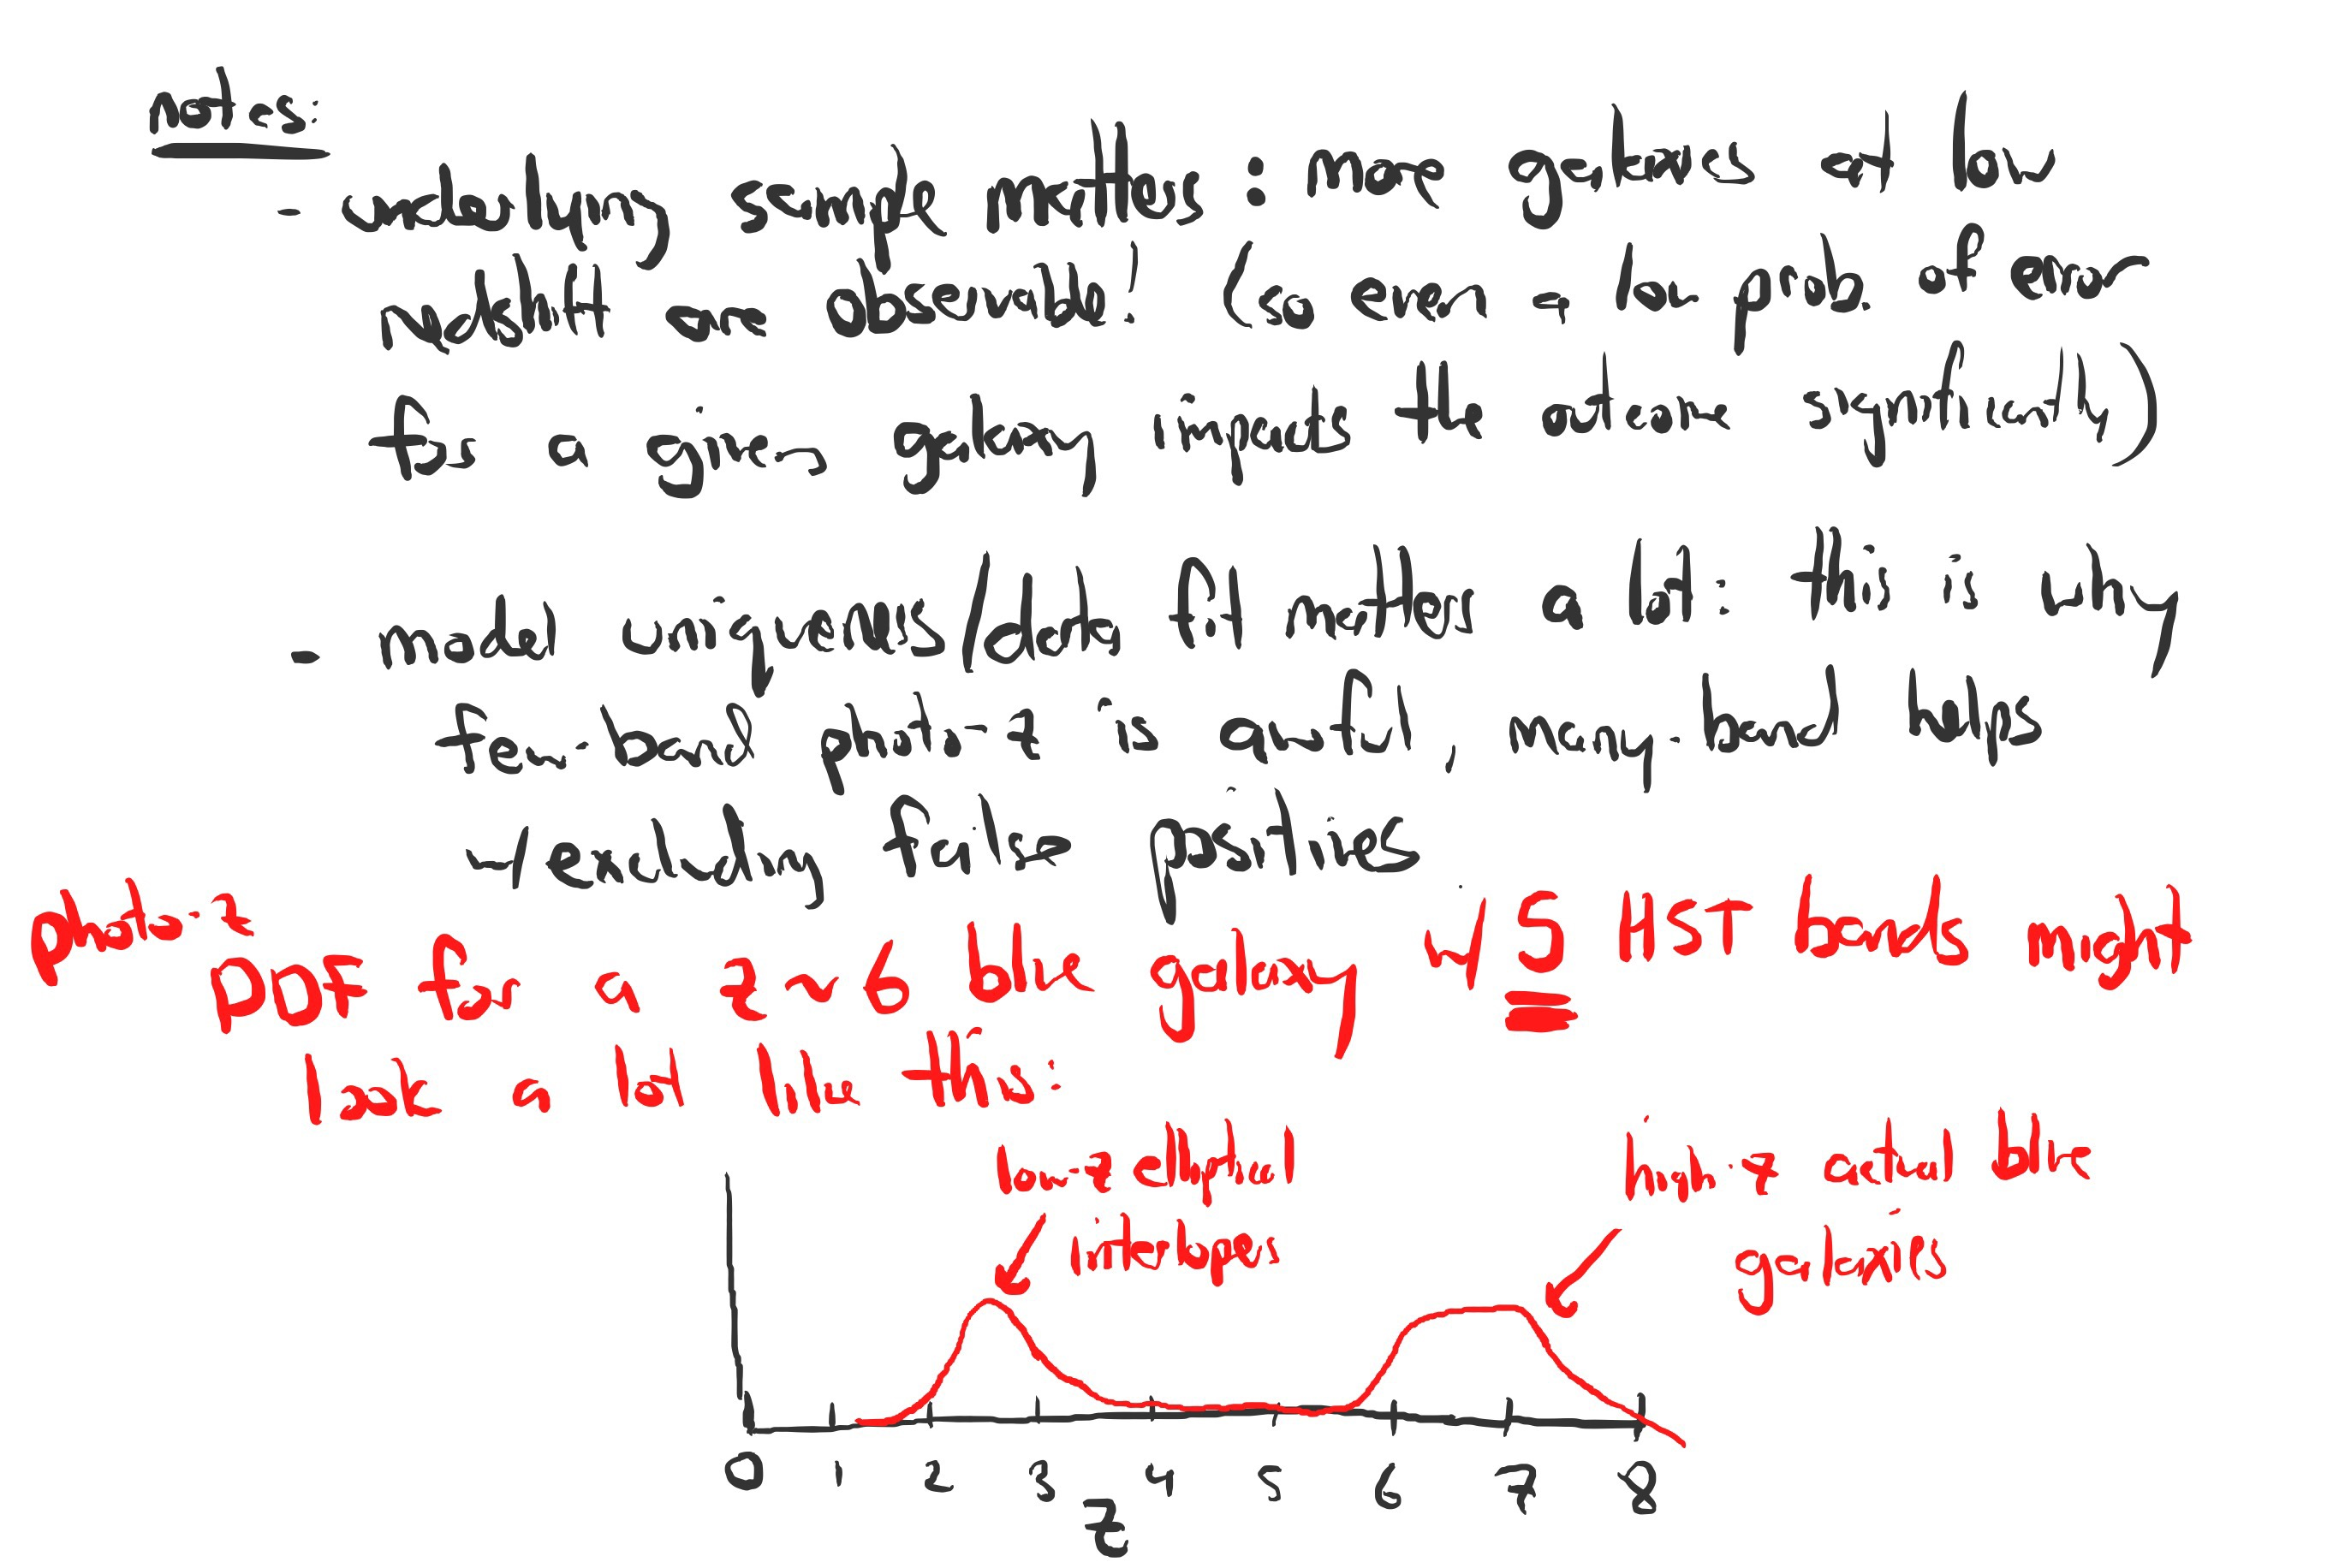 notes:
- underlying sample matters: more galaxies at low
redshift are observable! (so even a low prob. of error
for a given galaxy impacts the outcome significantly)
- model uniqueness/data fit matters a lot: this is why
few-band photo-z is awful, many-band helps
w/ excluding false positives
photo-z
PDF for a z~6 blue galaxy w/ 5 HST bands might
look a lot like this:
low-z elliptical
interlopers
high-z actual blue
galaxies
0 1 2 3 4 5 6 7 8
z